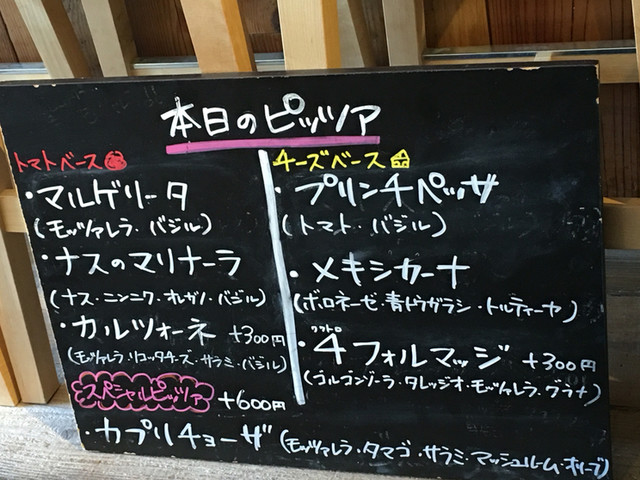 本日のピッツァ
トマトベース
・マルゲリータ
(モッツァレラ・バジル)
・ナスのマリナーラ
(ナス・ニンニク・オレガノ・バジル)
・カルツォーネ +300円
(モッツァレラ・リコッタチーズ・サラミ・バジル)
チーズベース
・プリンチペッサ
(トマト・バジル)
・メキシカーナ
(ボロネーゼ・青トウガラシ・トルティーヤ)
クワトロ
・4フォルマッジ +300円
(ゴルゴンゾーラ・タレッジオ・モッツァレラ・グラナ)
スペシャルピッツァ +600円
・カプリチョーザ (モッツァレラ・タマゴ・サラミ・マッシュルーム・オリーブ)